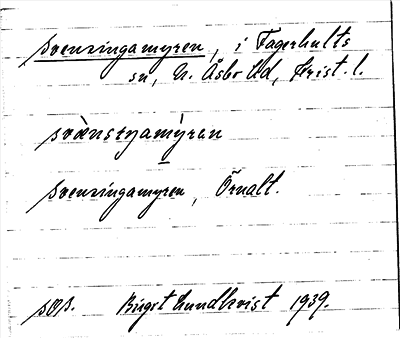 Svenzingamyren, i Fagerhults
sn, N. Åsbo hd, Krist. l.
svænsiŋamy̌ren
Svenzingamyren, Örnalt.
Birgit Lundkvist 1939.